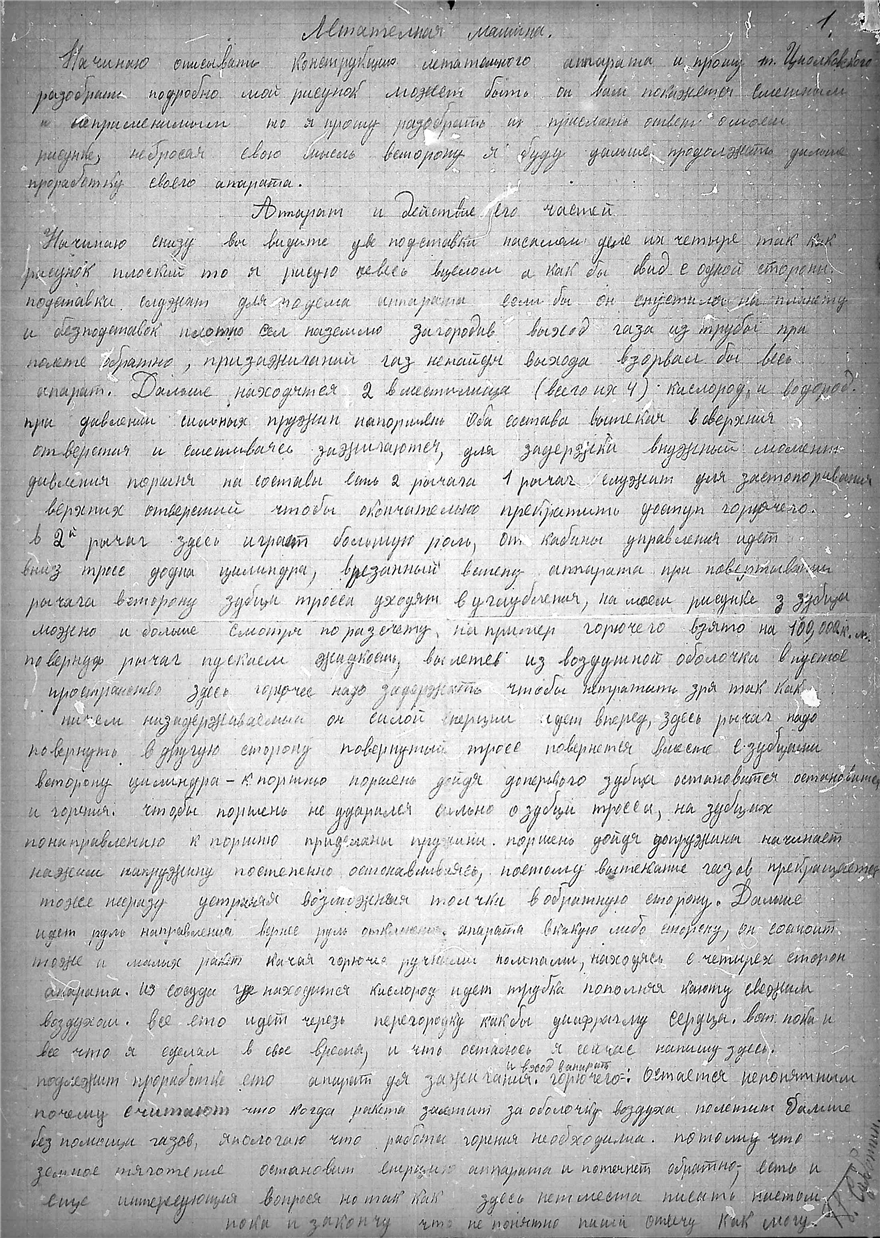 Летателная машина. 1.
Начинаю описывать конструкцию летательного аппарата и прошу т. Циолковского
разобрать подробно мой рисунок может быть он вам покажется смешным
и неприменимым но я прошу разобрать и прислать ответ о моем
рисунке, небросая свою мысль всторону я буду дальше продолжать дальше
проработку своего апарата.
Аппарат и действие его частей
Начинаю снизу вы видите две подставки насамом деле их четыре так как
рисунок плоский то я рисую невесь вцелом а как бы вид с одной стороны.
подставки служат для подема аппарата если бы он спустился на планету
и безподставок плотно сел наземлю загородив выход газа из трубы при
полете обратно, призажигании газ ненайдя выхода взорвал бы весь
апарат. Дальше находятся 2 вместилища (всего их 4) кислород, и водород.
при давлении сильных пружин напоршень оба состава вытекая вверхния
отверстия и смешиваясь зажигаются, для задержки внужный момент
давления поршня на составы есть 2 рычага 1 рычаг служит для застопоривания
верхних отверстий чтобы окончательно прекратить доступ горючего.
в 2й рычаг здесь играет большую роль, от кабины управления идет
вниз тросс додна цилиндра, врезанный встену аппарата при повертывании
рычага всторону зубцы тросса уходят вуглубления, на моем рисунке 3 зубца
можно и больше смотря по разсчету, например горючего взято на 100,000 к.м.
повернув рычаг пускаем жидкость, вылетев из воздушной оболочки в пустое
пространство здесь горючее надо задержать чтобы нетратить зря так как
ничем незадерживаемый он силой енерции идет вперед, здесь рычаг надо
повернуть в другую сторону повернутый тросс повернется вместе с зубцами
всторону цилиндра – к поршню поршень дойдя допервого зубца остановится остановится
и горение. чтобы поршень не ударился сильно о зубцы тросса, на зубцах
понаправлению к поршню приделаны пружины. поршень дойдя допружины начинает
нажим напружину постепенно останавливаясь, поетому вытекание газов прекращается
тоже несразу устраняя возможныя толчки вобратную сторону. Дальше
идет руль направления вернее руль отклонения апарата вкакую либо сторону, он состоит
тоже и малых ракет качая горючее ручными помпами, находясь с четырех сторон
апарата. из сосуда где находится кислород идет трубка пополняя каюту свежим
воздухом. все ето идет черезь перегородку какбы диафрагму сердца. вот пока и
все что я сделал в свое время, и что осталось я сейчас напишу здесь.
подлежит проработке ето апарат для зажигания горючего и вход в апарат: остается непонятным
почему считают что когда ракета залетит за оболочку воздуха полетит дальше
без помощи газов, япологаю что работа горения необходима. потому что
земное тяготение остановит енерцию аппарата и потянет обратно, есть и
еще интересующия вопросы но так как здесь нет места писать
пока и закончу что не понятно пиши отвечу как могу.